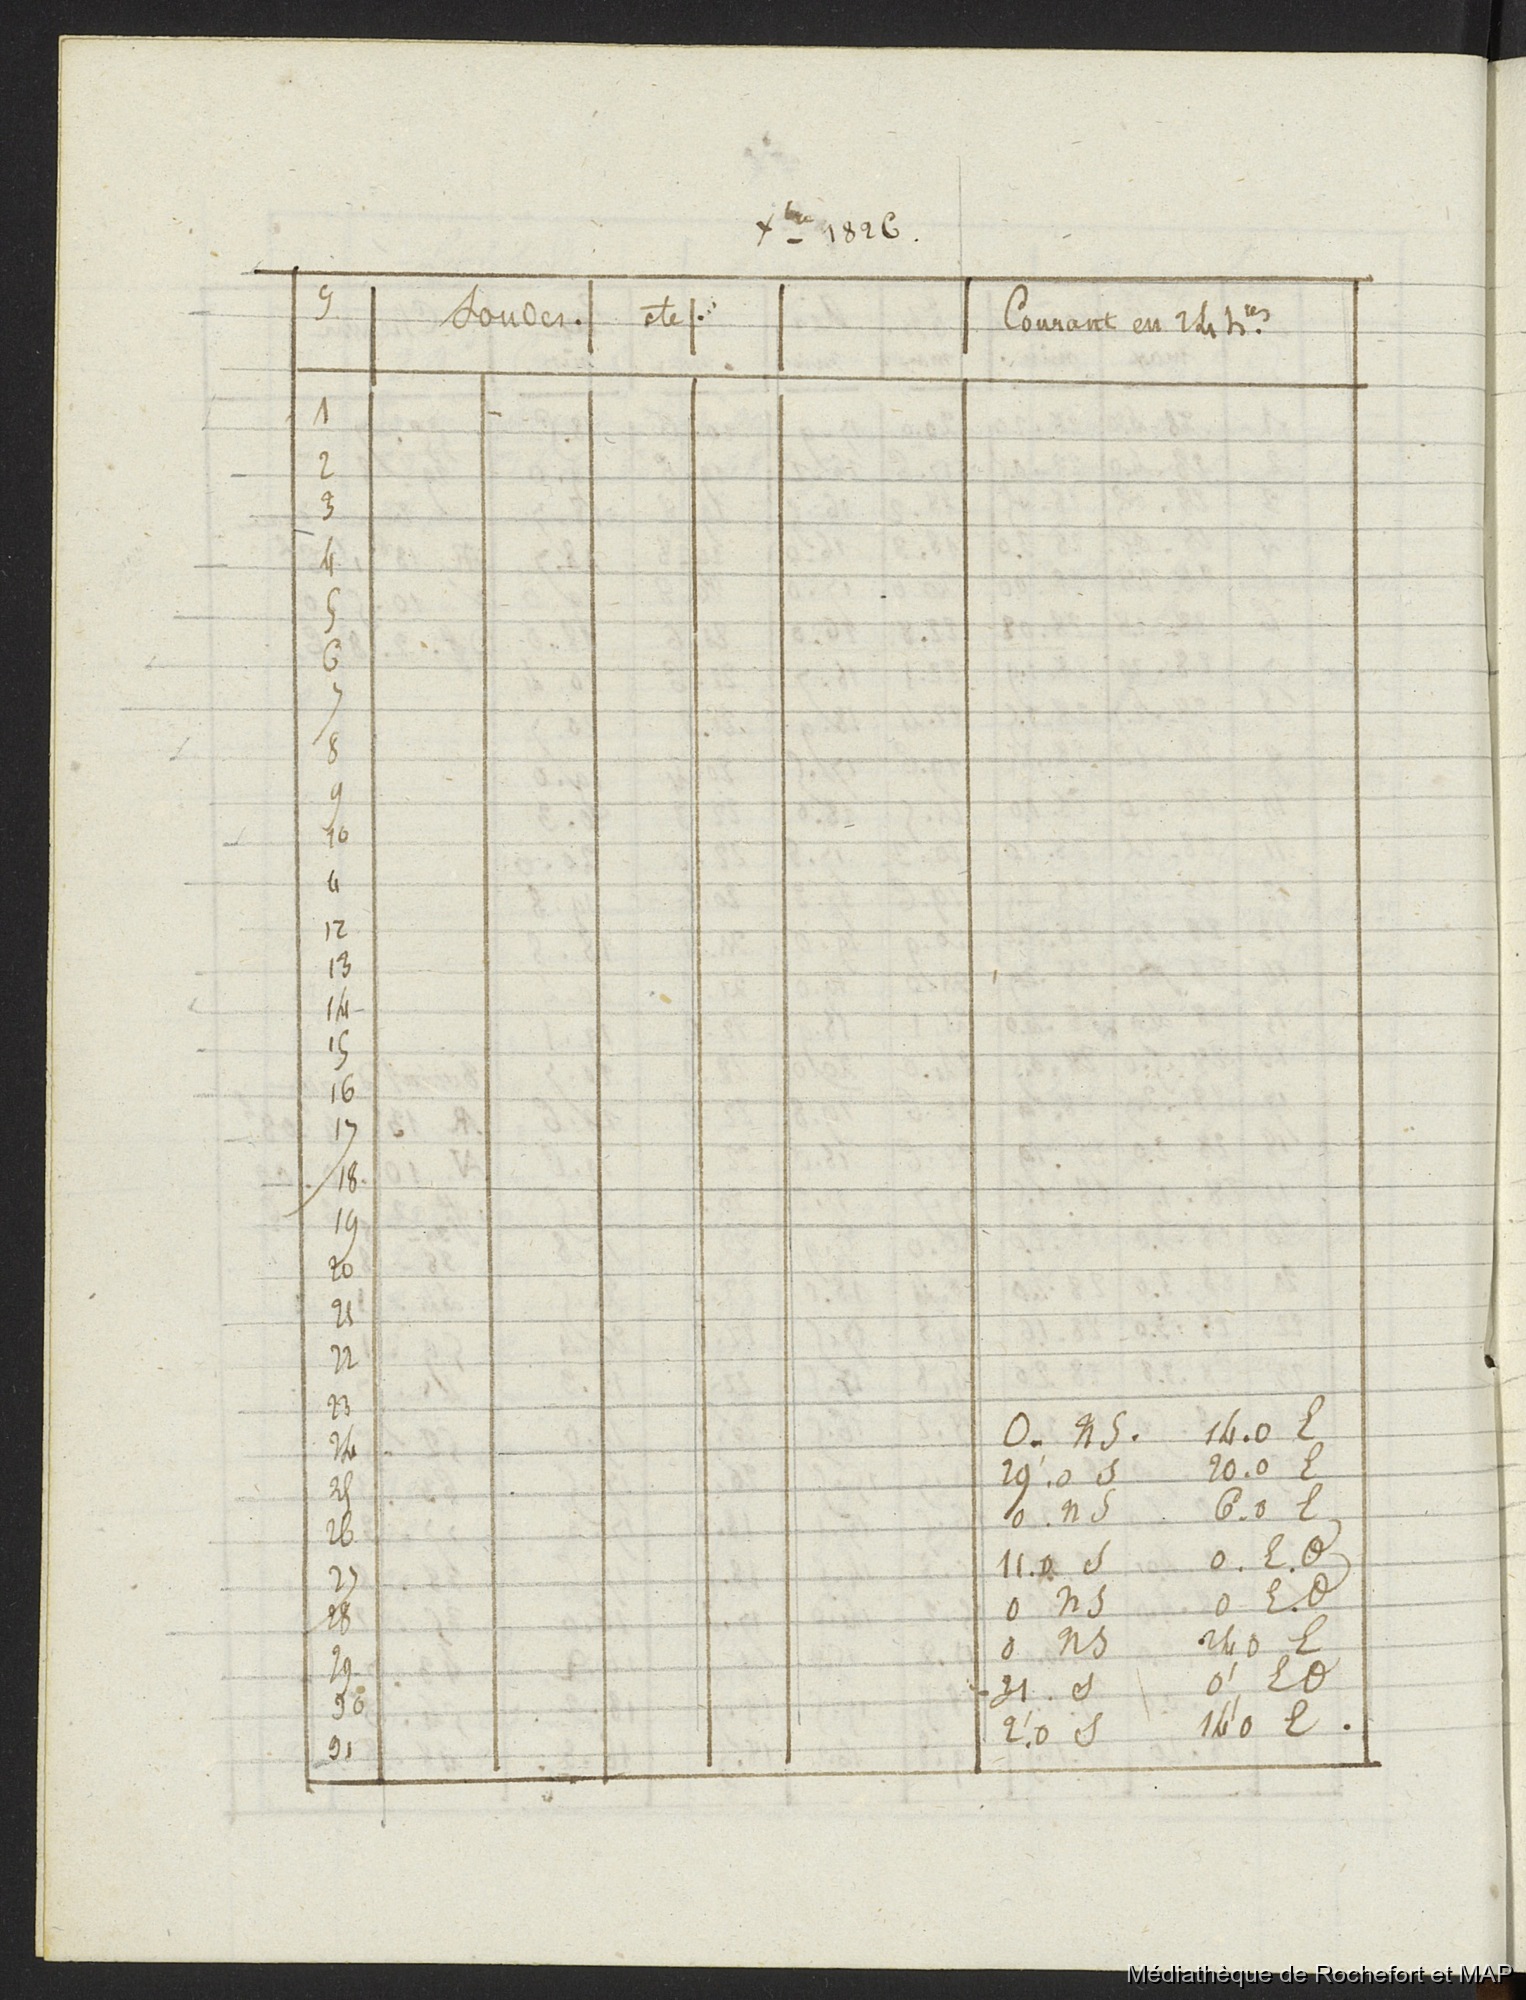 Xbre 1826.
J Sondes. Ste. Courant en 24 hres
1
2
3
4
5
6
7
8
9
10
11
12
13
14
15
16
17
18
19
20
21
22
23
24 0. NS. 14.0 E
25 29'.0 S 20.0 E
26 0. NS 6.0 E
27 11.0 S 0. E.O
28 0 NS 0 E.O
29 0 NS 24 0 E
30 31. S 0' E O
31 2'.0 S 14'0 E.
Médiathèque de Rochefort et MAP